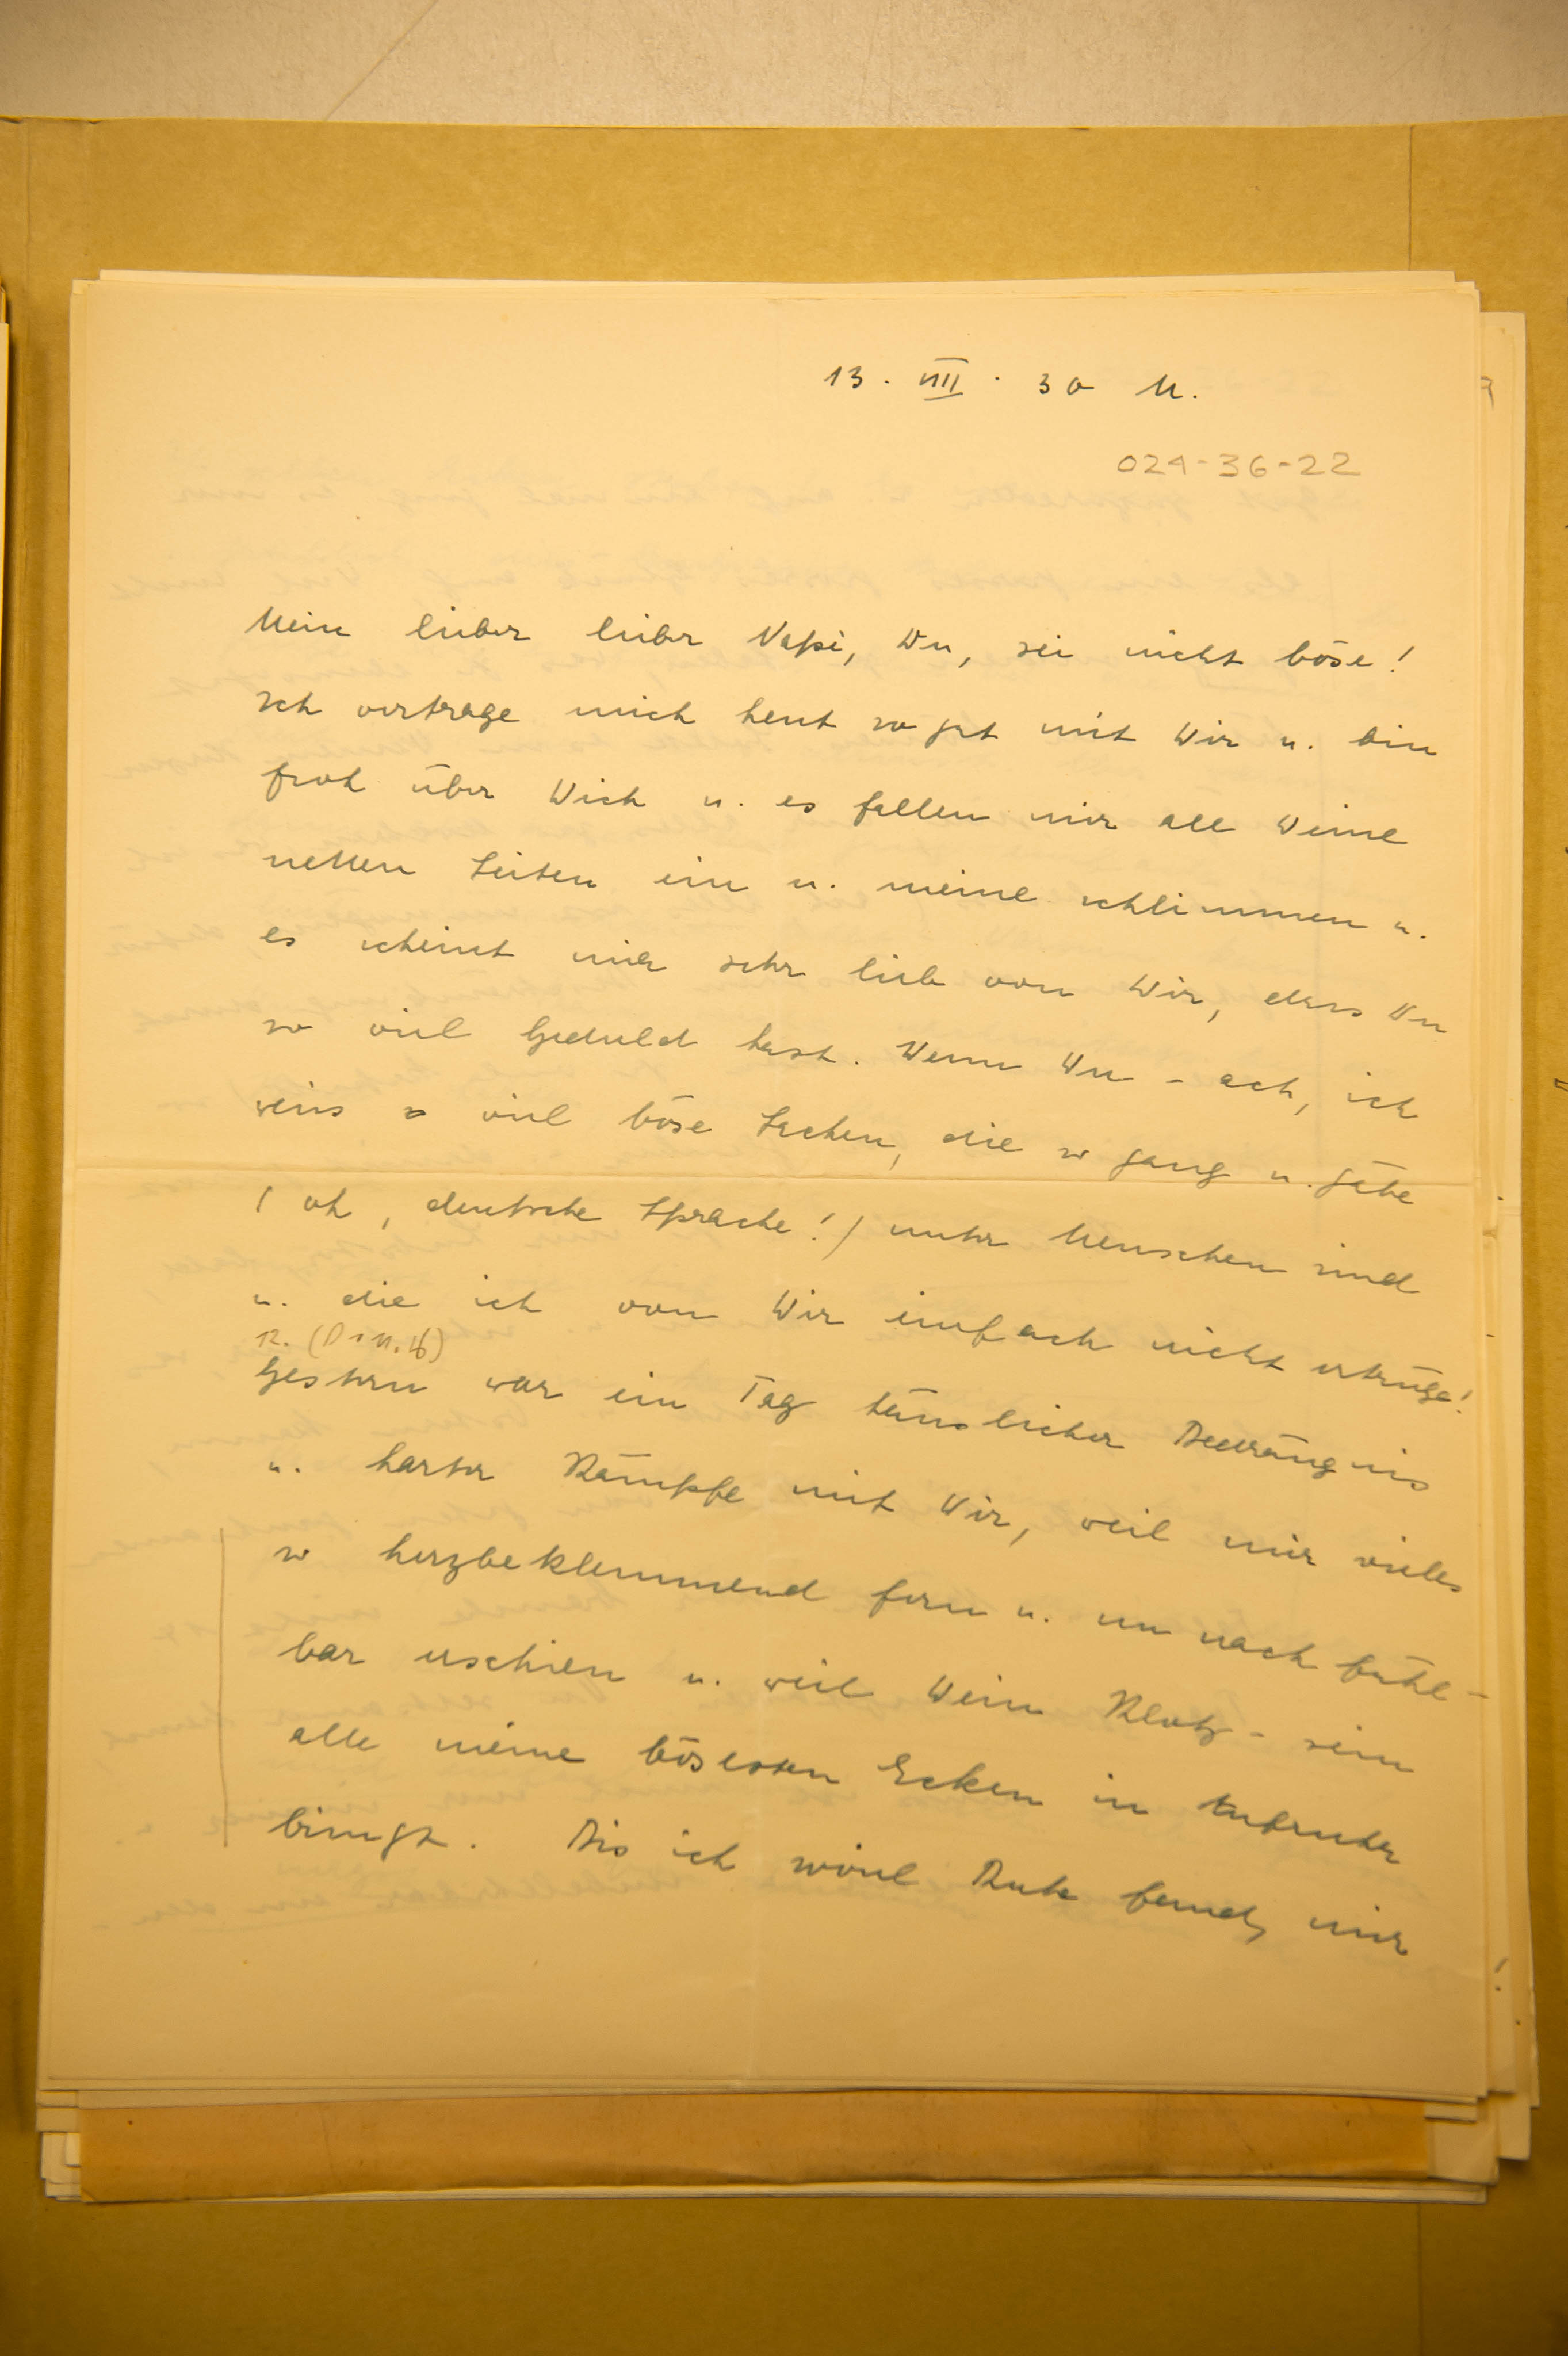 13. VIII. 30 M.
024-36-22
Mein lieber lieber Napi, Du, sei nicht böse!
Ich vertrage mich heut so gut mit Dir u. bin
froh über Dich u. es fallen mir all Deine
netten Seiten ein u. meine schlimmen u.
es scheint mir sehr lieb von Dir, dass Du
so viel Geduld hast. Wenn Du - ach, ich
weiss so viel böse Sachen, die so gang u. gäbe
(oh, deutsche Sprache!) unter Menschen sind
u. die ich von Dir einfach nicht ertrüge!
12. (Di
Gestern war ein Tag häuslicher Bedrängnis
u. harter Kämpfe mit Dir, weil mir vieles
so herzbeklemmend fern u. un nach fühl-
bar erschien u. weil Dein Klotz - sein
alle meine bösesten Ecken in Aufruhr
bringt. Bis ich soviel Ruhe fand, mir